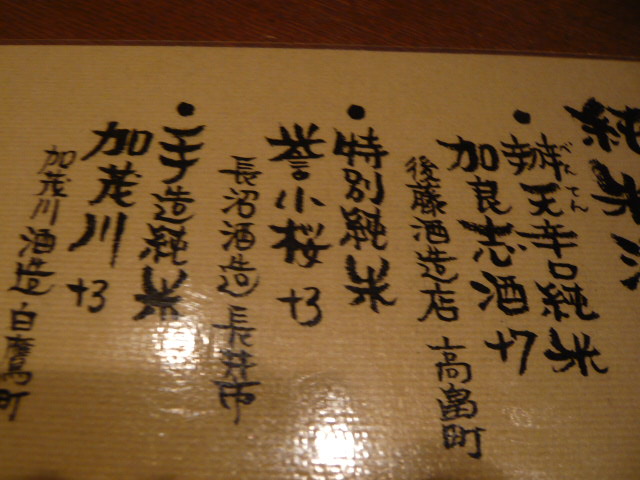 純米酒
辯天辛口純米
べんてん
加良志酒 +7
後藤酒造店 高畠町
特別純米
誉小桜 +3
長沼酒造 長井市
手造純米
加茂川 +3
加茂川酒造 白鷹町